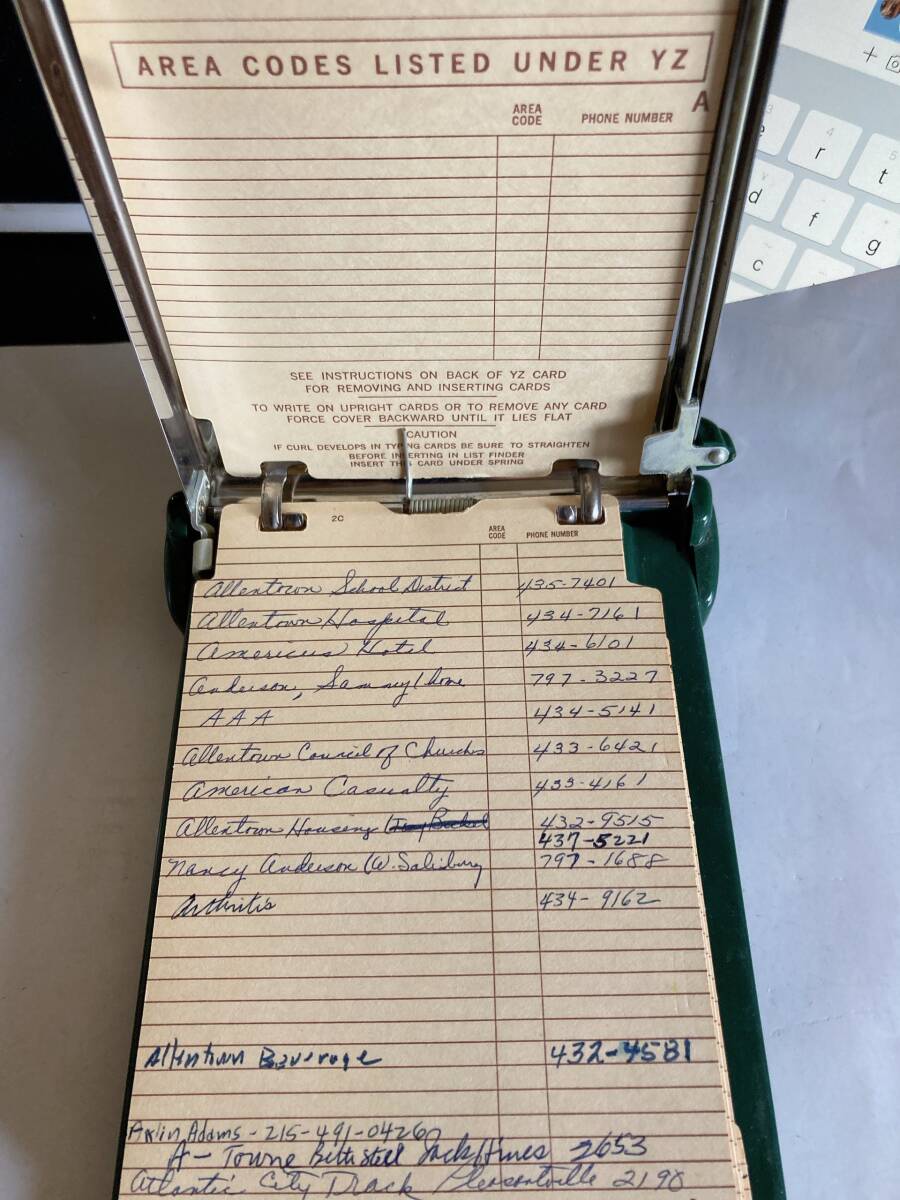 AREA CODES LISTED UNDER YZ
A
AREA CODE PHONE NUMBER
SEE INSTRUCTIONS ON BACK OF YZ CARD
FOR REMOVING AND INSERTING CARDS
TO WRITE ON UPRIGHT CARDS OR TO REMOVE ANY CARD
FORCE COVER BACKWARD UNTIL IT LIES FLAT
CAUTION
IF CURL DEVELOPS IN TYPING CARDS BE SURE TO STRAIGHTEN
BEFORE INSERTING IN LIST FINDER
INSERT THIS CARD UNDER SPRING
2C
AREA CODE PHONE NUMBER
Allentown School District 435-7401
Allentown Hospital 434-7161
Americus Hotel 434-6101
Anderson, Sammy 797-3227
AAA 434-5141
Allentown Council of Churches 433-6421
American Casualty 433-4161
Allentown Housing 432-9515
437-5221
Nancy Anderson (W. Salisbury 797-1688
Arthritis 434-9162
Allentown Beverage 432-4581
Arlin Adams - 215-491-0426
A- Towne Jack Hines 2653
Atlantic City Track Pleasantville 2190
e r t
d f g
c